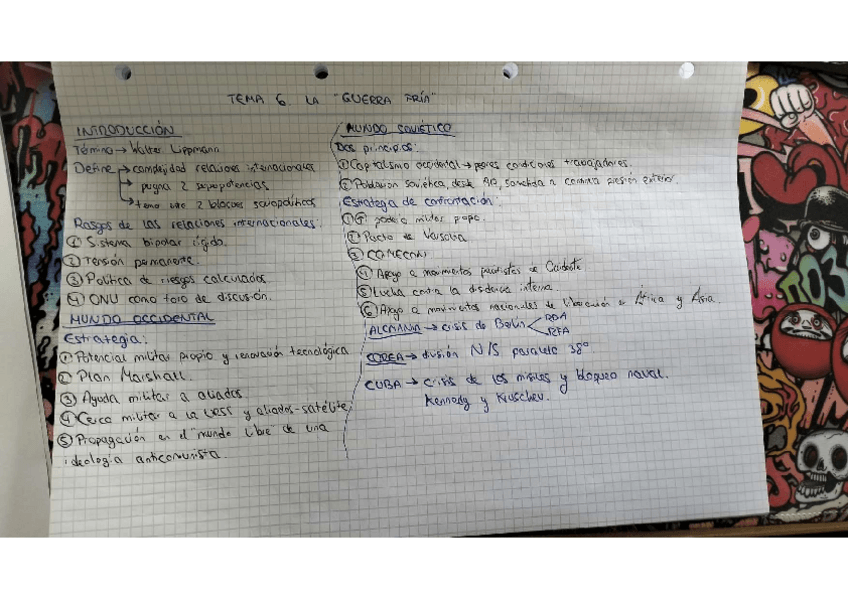 TEMA 6. LA "GUERRA FRÍA"
INTRODUCCIÓN
Término → Walter Lippmann
Define → complejidad relaciones internacionales
→ pugna 2 superpotencias
→ tema uso 2 bloques sociopolíticos
Rasgos de las relaciones internacionales:
① Sistema bipolar rígido.
② Tensión permanente.
③ Política de riesgos calculados
④ ONU como foro de discusión.
MUNDO OCCIDENTAL
Estrategia:
① Potencial militar propio y renovación tecnológica
② Plan Marshall.
③ Ayuda militar a aliados
④ Cerco militar a la URSS y aliados-satélite
⑤ Propagación en el "mundo libre" de una
ideología anticomunista.
MUNDO SOVIÉTICO
Dos principios:
① Capitalismo occidental → peores condiciones trabajadores.
② Población soviética, desde sometida a continua presión exterior.
Estrategia de confrontación:
① poderío militar propio.
② Pacto de Varsovia
③ COMECON
④ Apoyo a movimientos pacifistas de Occidente
⑤ Lucha contra la disidencia interna.
⑥ Apoyo a movimientos nacionales de liberación de África y Asia.
ALEMANIA → crisis de Berlín < RDA
RFA
COREA → división N/S paralelo 38º
CUBA → crisis de los misiles y bloqueo naval.
Kennedy y Kruschev.